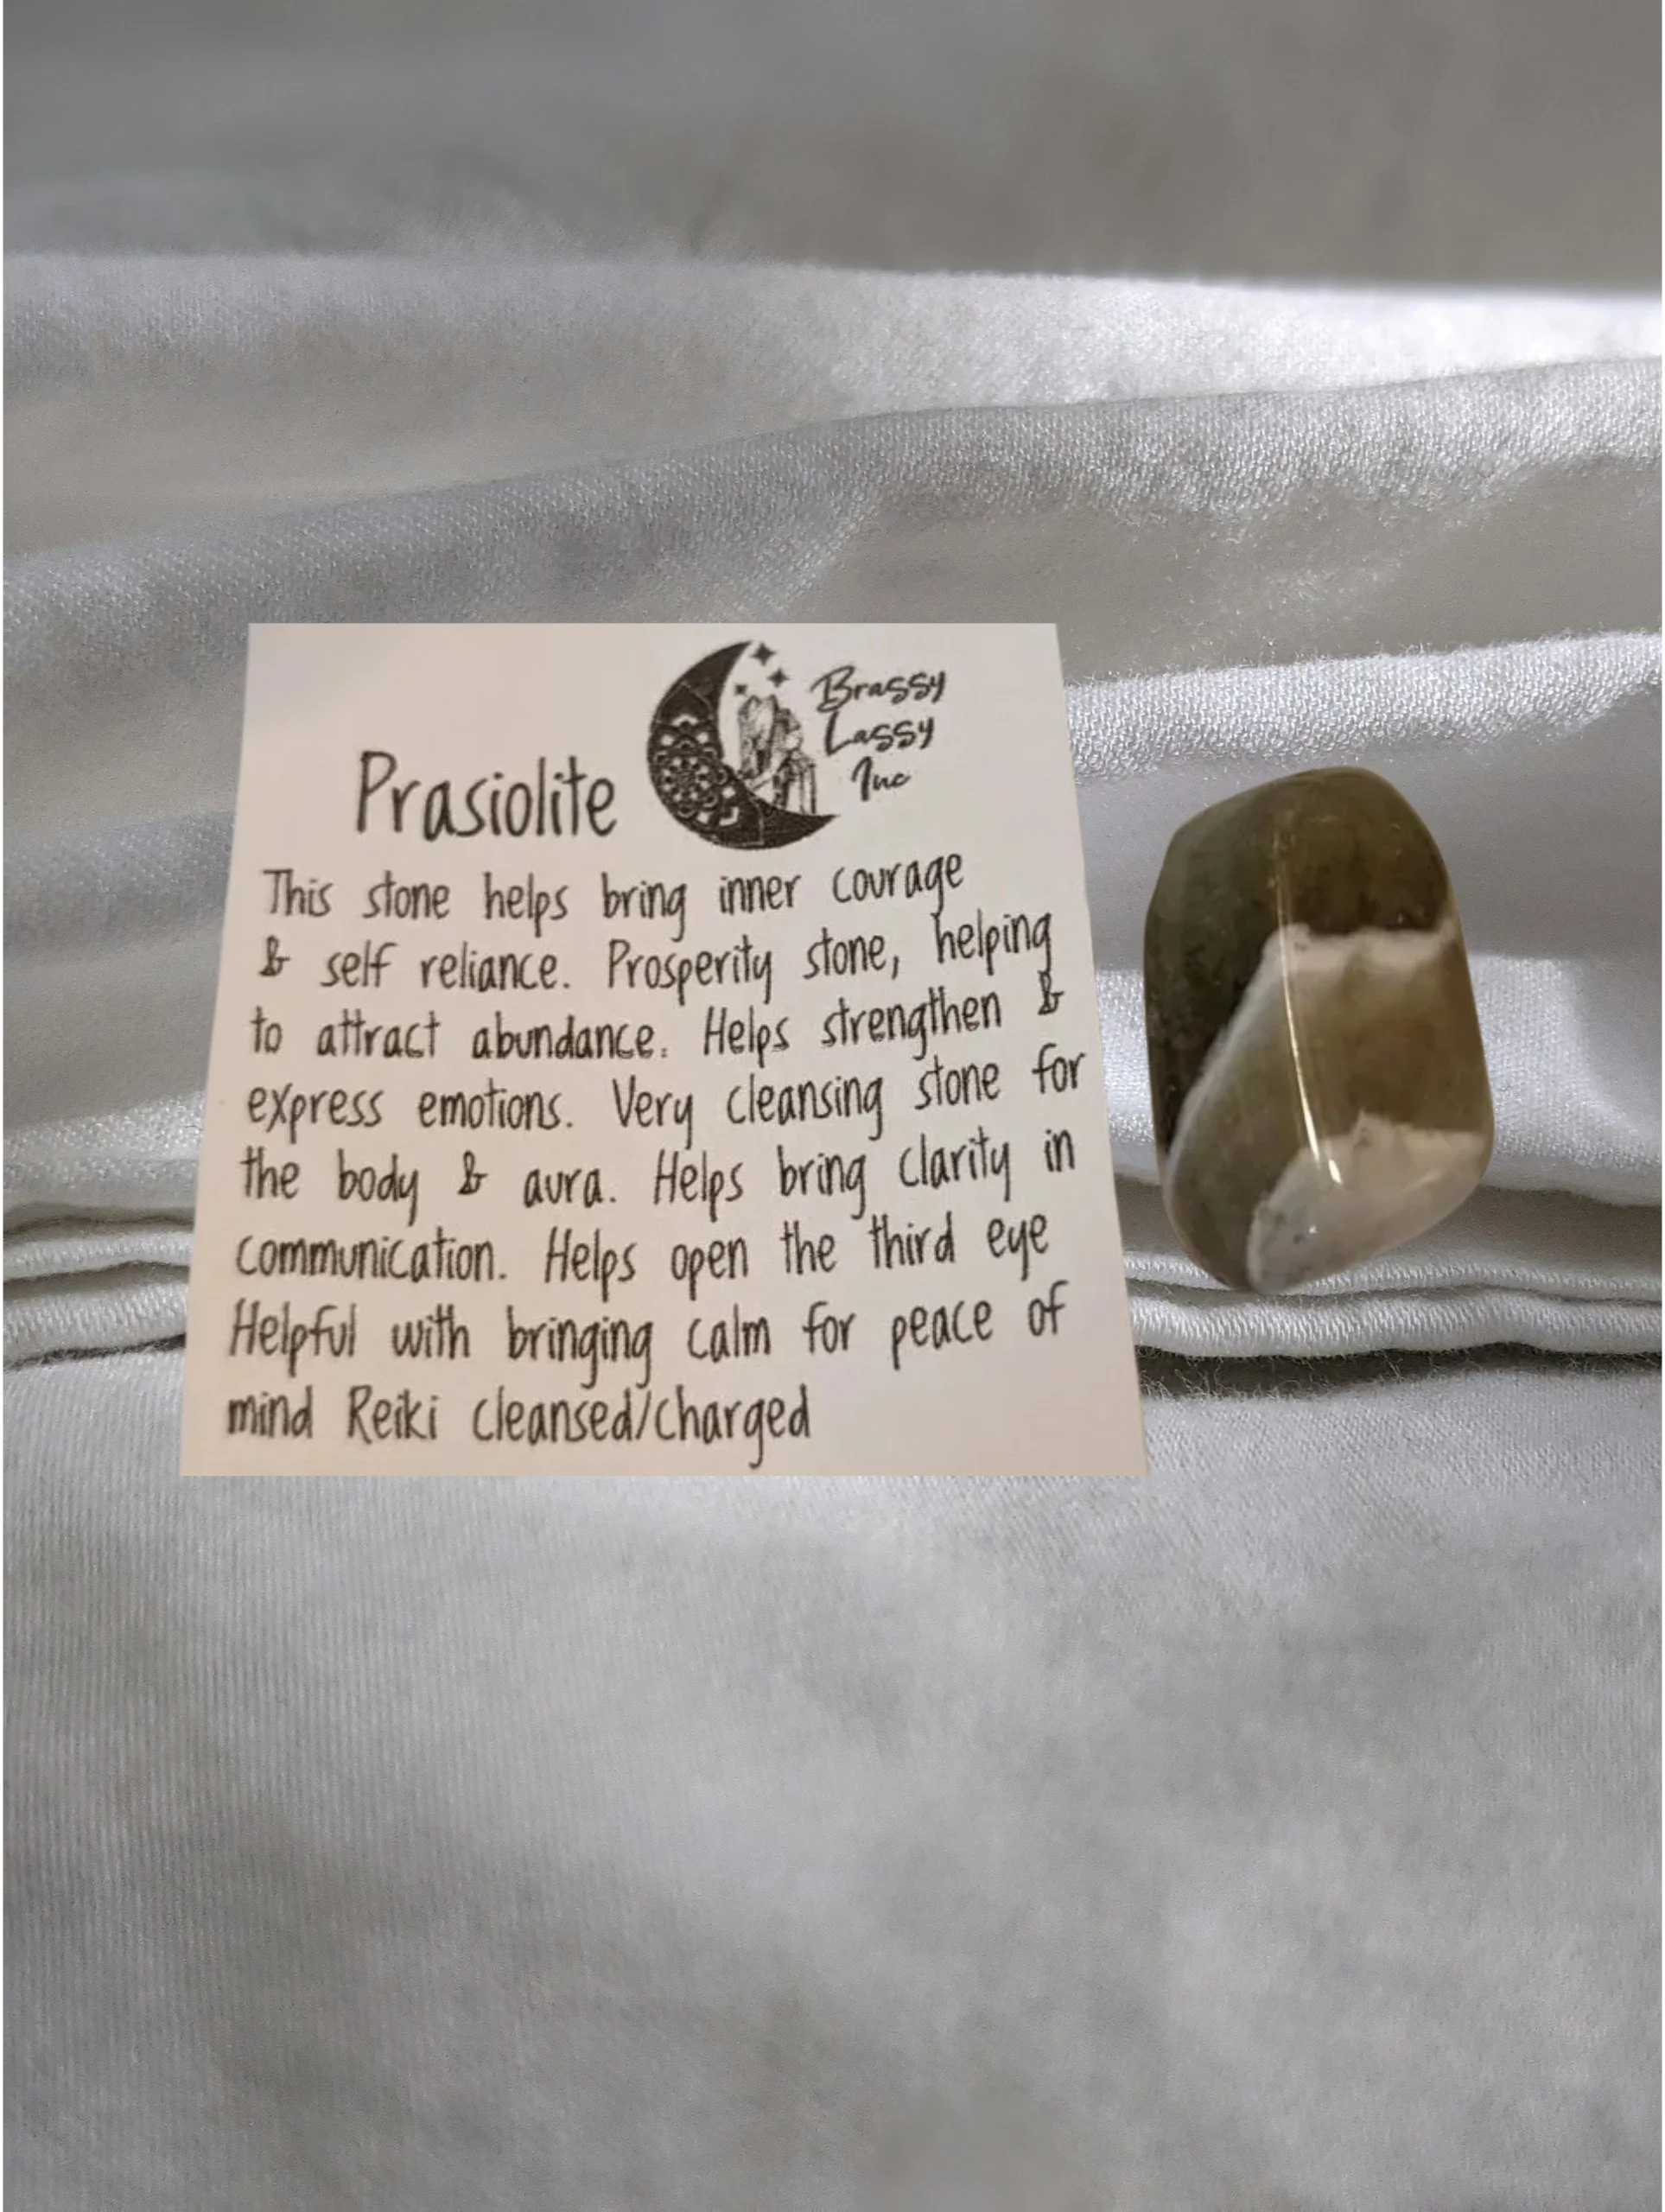 Brassy
Lassy
Inc
Prasiolite
This stone helps bring inner courage
& self reliance. Prosperity stone, helping
to attract abundance. Helps strengthen &
express emotions. Very cleansing stone for
the body & aura. Helps bring clarity in
communication. Helps open the third eye
Helpful with bringing calm for peace of
mind Reiki cleansed/charged